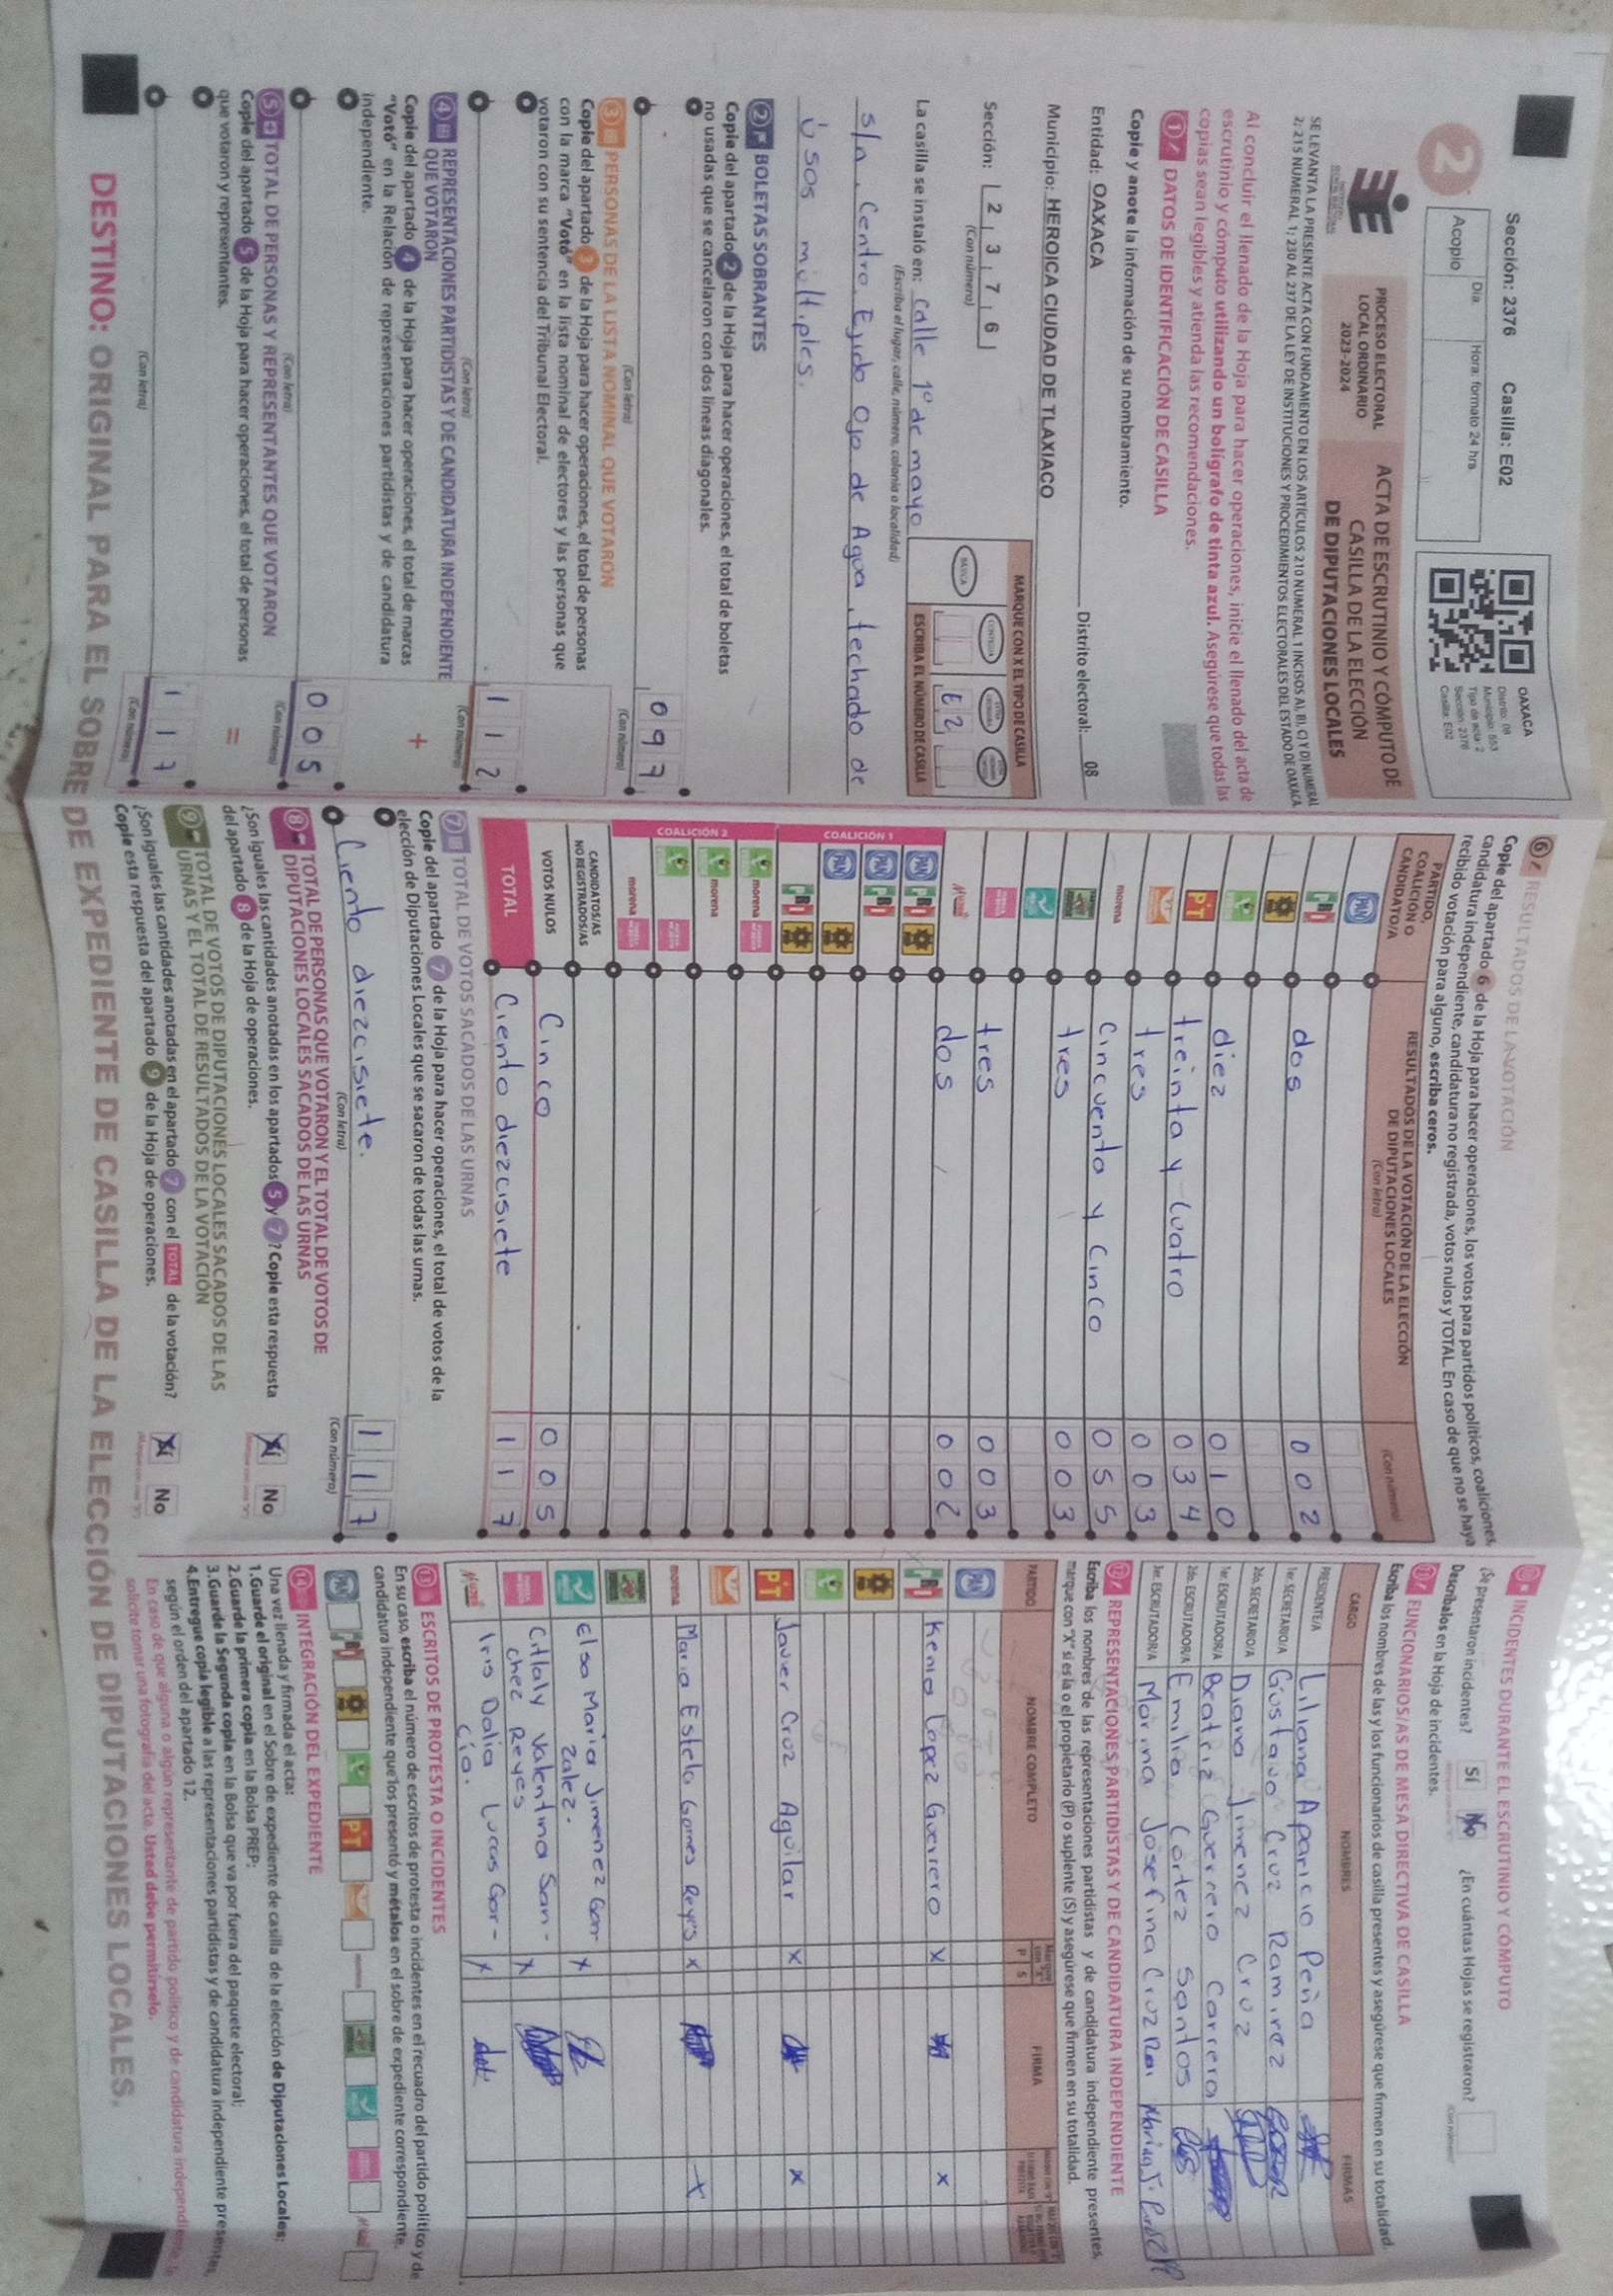 Sección: 2376 Casilla: E02
2
Acopio
Día:
Hora: formato 24 hrs.
OAXACA
Distrito: 08
Municipio: 553
Tipo de acta: 2
Sección: 2376
Casilla: E02
PROCESO ELECTORAL
LOCAL ORDINARIO
2023-2024
ACTA DE ESCRUTINIO Y CÓMPUTO DE
CASILLA DE LA ELECCIÓN
DE DIPUTACIONES LOCALES
SE LEVANTA LA PRESENTE ACTA CON FUNDAMENTO EN LOS ARTÍCULOS 210 NUMERAL 1 INCISOS A), B), C) Y D) NUMERAL
2; 215 NUMERAL 1; 230 AL 237 DE LA LEY DE INSTITUCIONES Y PROCEDIMIENTOS ELECTORALES DEL ESTADO DE OAXACA.
Al concluir el llenado de la Hoja para hacer operaciones, inicie el llenado del acta de
escrutinio y cómputo utilizando un bolígrafo de tinta azul. Asegúrese que todas las
copias sean legibles y atienda las recomendaciones.
1 DATOS DE IDENTIFICACIÓN DE CASILLA
Copie y anote la información de su nombramiento.
Entidad: OAXACA Distrito electoral: 08
Municipio: HEROICA CIUDAD DE TLAXIACO
Sección: 2 3 7 6
(Con número)
MARQUE CON X EL TIPO DE CASILLA
BÁSICA
CONTIGUA
ESCRIBA EL NÚMERO DE CASILLA
E 2
La casilla se instaló en: calle 1º de mayo
(Escriba el lugar, calle, número, colonia o localidad)
s/n, Centro, Ejido Ojo de Agua, techado de
usos multiples.
2 BOLETAS SOBRANTES
Copie del apartado 2 de la Hoja para hacer operaciones, el total de boletas
no usadas que se cancelaron con dos líneas diagonales.
0 9 7
(Con letra) (Con número)
3 PERSONAS DE LA LISTA NOMINAL QUE VOTARON
Copie del apartado 3 de la Hoja para hacer operaciones, el total de personas
con la marca "Votó" en la lista nominal de electores y las personas que
votaron con su sentencia del Tribunal Electoral.
1 1 2
(Con letra) (Con número)
4 REPRESENTACIONES PARTIDISTAS Y DE CANDIDATURA INDEPENDIENTE
QUE VOTARON
Copie del apartado 4 de la Hoja para hacer operaciones, el total de marcas
"Votó" en la Relación de representaciones partidistas y de candidatura
independiente.
+
0 0 5
(Con letra) (Con número)
5 TOTAL DE PERSONAS Y REPRESENTANTES QUE VOTARON
Copie del apartado 5 de la Hoja para hacer operaciones, el total de personas
que votaron y representantes.
=
1 1 7
(Con letra) (Con número)
6 RESULTADOS DE LA VOTACIÓN
Copie del apartado 6 de la Hoja para hacer operaciones, los votos para partidos políticos, coaliciones,
candidatura independiente, candidatura no registrada, votos nulos y TOTAL. En caso de que no se haya
recibido votación para alguno, escriba ceros.
PARTIDO,
COALICIÓN O
CANDIDATO/A
RESULTADOS DE LA VOTACIÓN DE LA ELECCIÓN
DE DIPUTACIONES LOCALES
(Con letra)
(Con número)
PAN
PRI dos 0 0 2
diez 0 1 0
PT treinta y cuatro 0 3 4
tres 0 0 3
morena cincuenta y cinco 0 5 5
tres 0 0 3
tres 0 0 3
dos 0 0 2
COALICIÓN 1
PAN PRI
PAN PRI
PAN
PRI
COALICIÓN 2
morena
morena
morena
CANDIDATOS/AS
NO REGISTRADOS/AS
VOTOS NULOS Cinco 0 0 5
TOTAL Ciento diezcisiete 1 1 7
7 TOTAL DE VOTOS SACADOS DE LAS URNAS
Copie del apartado 7 de la Hoja para hacer operaciones, el total de votos de la
elección de Diputaciones Locales que se sacaron de todas las urnas.
Ciento diezcisiete. 1 1 7
(Con letra) (Con número)
8 TOTAL DE PERSONAS QUE VOTARON Y EL TOTAL DE VOTOS DE
DIPUTACIONES LOCALES SACADOS DE LAS URNAS
¿Son iguales las cantidades anotadas en los apartados 5 y 7? Copie esta respuesta
del apartado 8 de la Hoja de operaciones.
Sí No
9 TOTAL DE VOTOS DE DIPUTACIONES LOCALES SACADOS DE LAS
URNAS Y EL TOTAL DE RESULTADOS DE LA VOTACIÓN
¿Son iguales las cantidades anotadas en el apartado 7 con el TOTAL de la votación?
Copie esta respuesta del apartado 9 de la Hoja de operaciones.
Sí No
10 INCIDENTES DURANTE EL ESCRUTINIO Y CÓMPUTO
¿Se presentaron incidentes? Sí No ¿En cuántas Hojas se registraron?
Descríbalos en la Hoja de incidentes.
(Con número)
11 FUNCIONARIOS/AS DE MESA DIRECTIVA DE CASILLA
Escriba los nombres de las y los funcionarios de casilla presentes y asegúrese que firmen en su totalidad.
CARGO NOMBRES FIRMAS
PRESIDENTE/A Liliana Aparicio Peña
1er. SECRETARIO/A Gustavo Cruz Ramirez
2do. SECRETARIO/A Diana Jimenez Cruz
1er. ESCRUTADOR/A Beatriz Guerrero Carrera
2do. ESCRUTADOR/A Emilia Cortez Santos
3er. ESCRUTADOR/A Marina Josefina Cruz
12 REPRESENTACIONES PARTIDISTAS Y DE CANDIDATURA INDEPENDIENTE
Escriba los nombres de las representaciones partidistas y de candidatura independiente presentes,
marque con "X" si es la o el propietario (P) o suplente (S) y asegúrese que firmen en su totalidad.
PARTIDO NOMBRE COMPLETO P S FIRMA
PAN
PRI Kenia Lopez Guerrero X X
PT Javier Cruz Aguilar X X
morena Maria Estela Gomes Reyes X X
Elsa Maria Jimenez Gon-
zalez. X
Citlaly Valentina San-
chez Reyes X
Iris Dalia Lucas Gar-
cía. X
13 ESCRITOS DE PROTESTA O INCIDENTES
En su caso, escriba el número de escritos de protesta o incidentes en el recuadro del partido político y de
candidatura independiente que los presentó y métalos en el sobre de expediente correspondiente.
PAN PRI PT
14 INTEGRACIÓN DEL EXPEDIENTE
Una vez llenada y firmada el acta:
1.Guarde el original en el Sobre de expediente de casilla de la elección de Diputaciones Locales;
2.Guarde la primera copia en la Bolsa PREP;
3.Guarde la Segunda copia en la Bolsa que va por fuera del paquete electoral;
4.Entregue copia legible a las representaciones partidistas y de candidatura independiente presentes,
según el orden del apartado 12.
En caso de que alguna o algún representante de partido político y de candidatura independiente, le
solicite tomar una fotografía del acta. Usted debe permitírselo.
DESTINO: ORIGINAL PARA EL SOBRE DE EXPEDIENTE DE CASILLA DE LA ELECCIÓN DE DIPUTACIONES LOCALES.